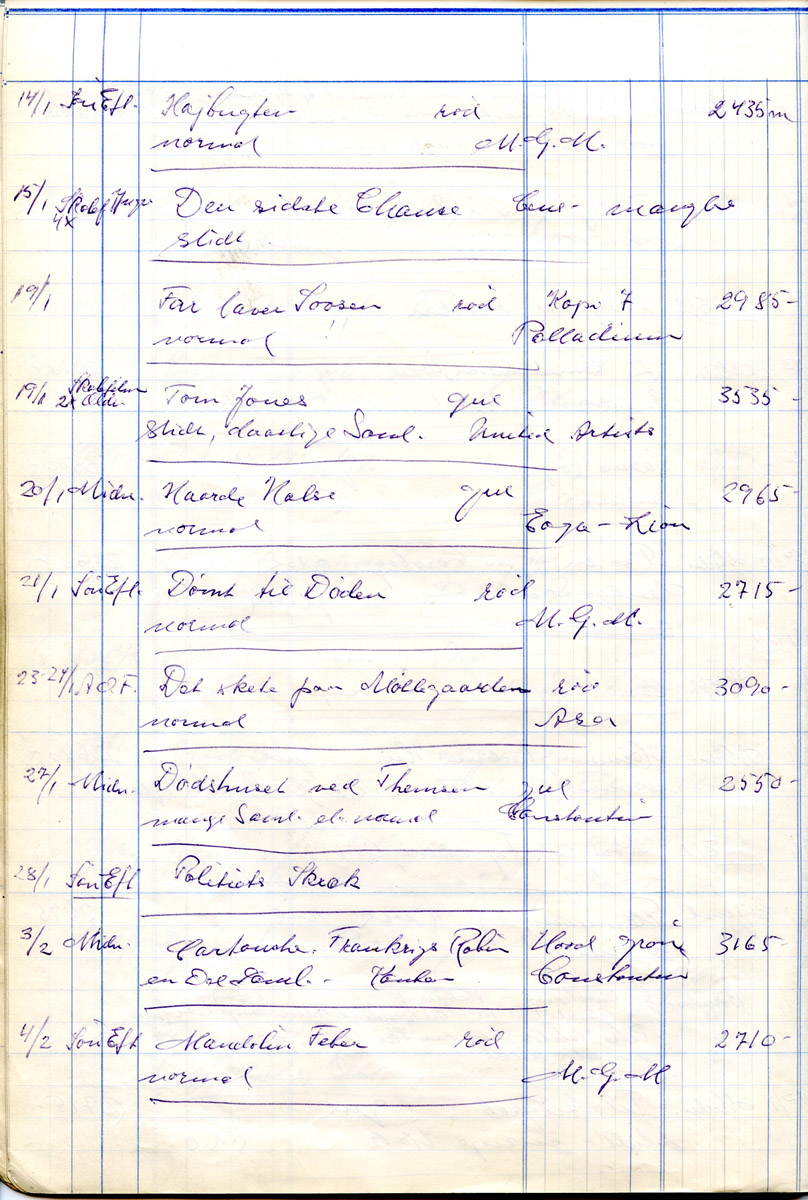 14/1 SönEft. Hajbugten röd 2435m
normal M.G.M.
15/1 Den sidste Chance mangler
4x
Slidt.
19/1 Far laver Soosen röd Kopi 7 2985-
normal Palladium
19/1 Skolefilm Tom Jones gul 3535-
2x
Slidt, daarlige Saml. United Artists
20/1 Midn. Haarde Halse gul 2965-
normal
21/1 SönEft. Dömt til Döden röd 2715-
normal M.G.M.
23-24/1 A.O.F. Det skete paa Möllegaarden röd 3090-
normal Asa
27/1 Midn. Dödshuset ved Themsen gul 2550-
mange Saml. el. normal Constantin
28/1 SönEft Politiets Skræk
3/2 Midn. Cartouche. Frankrigs Robin Hood grön 3165-
en Del Saml. - Constantin
4/2 SönEft Mandolin Feber röd 2710-
normal M.G.M